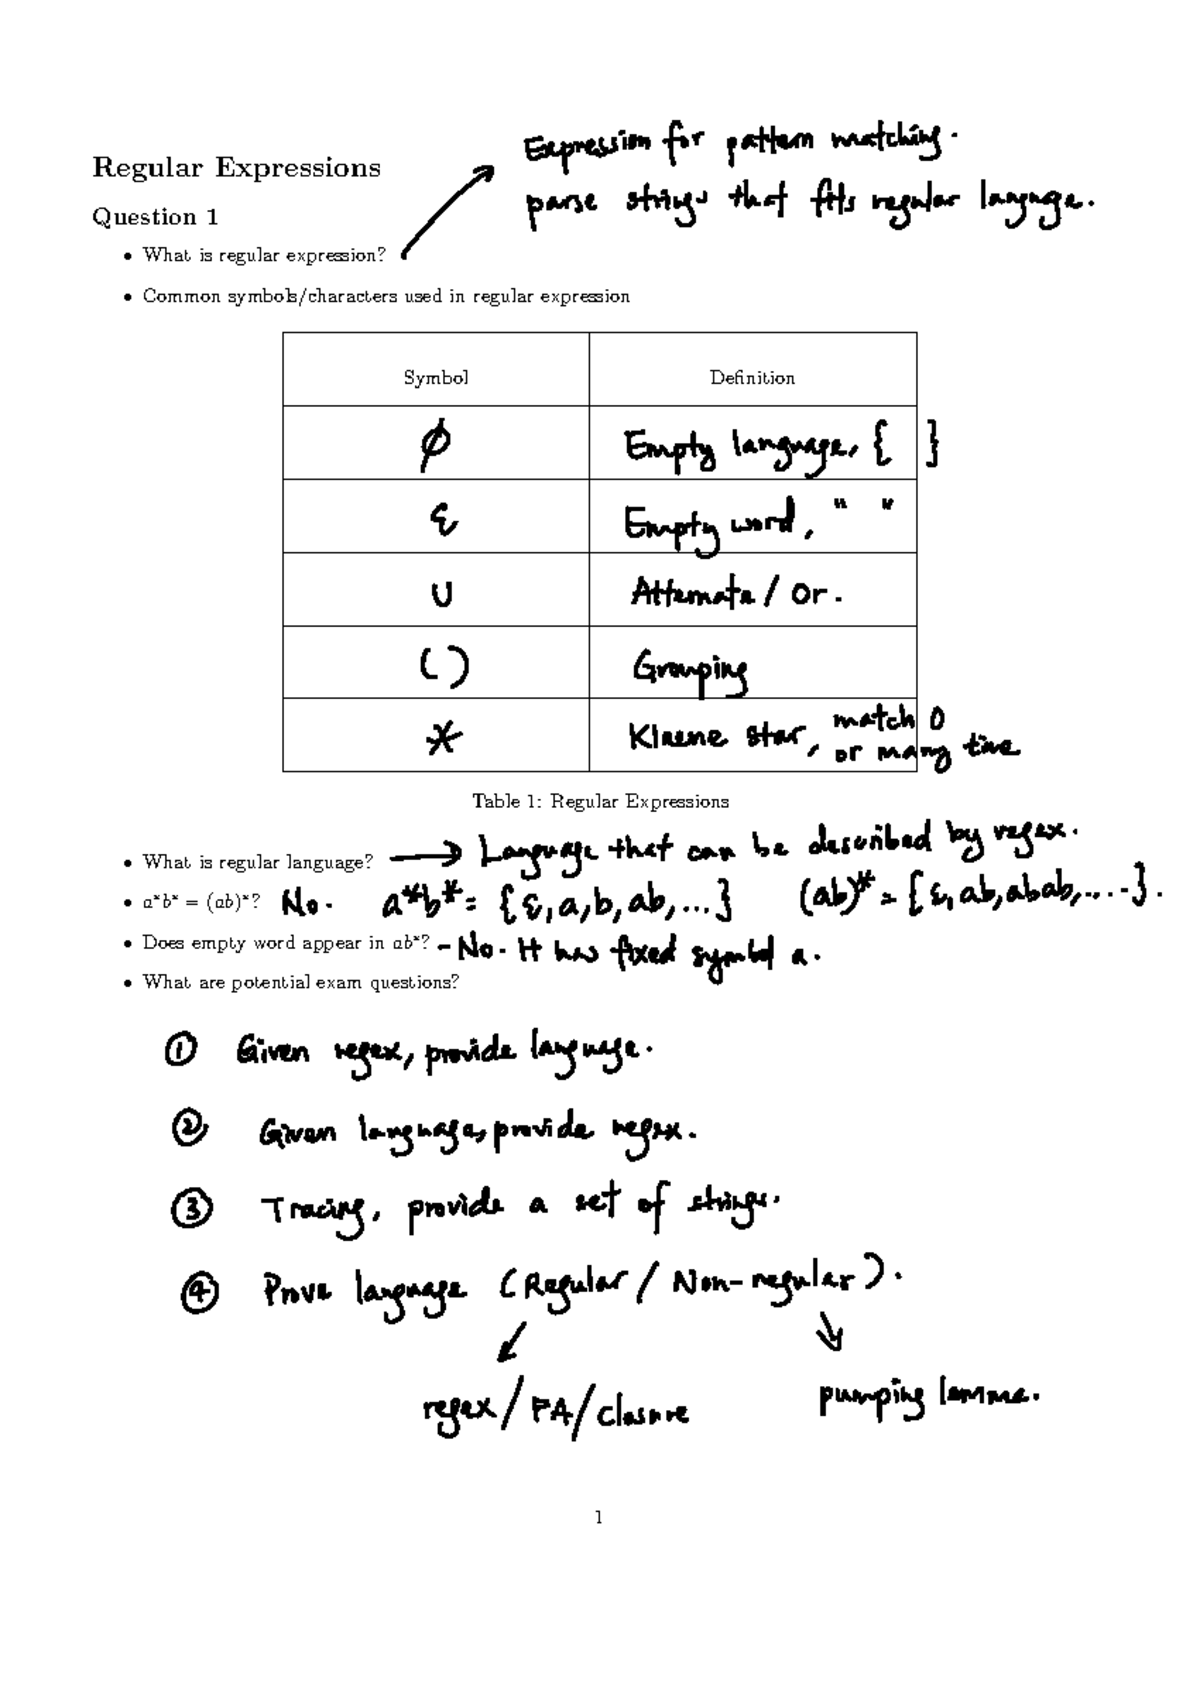 Expression for pattern matching.
Regular Expressions
parse strings that fits regular language.
Question 1
• What is regular expression?
• Common symbols/characters used in regular expression
Symbol Definition
∅ Empty language, { }
ε Empty word, " "
∪ Alternate / Or.
( ) Grouping
* Kleene star, match 0
or many time
Table 1: Regular Expressions
• What is regular language? → Language that can be described by regex.
• a*b* = (ab)*? No. a*b* = {ε, a, b, ab, ...} (ab)* = {ε, ab, abab, ....}.
• Does empty word appear in ab*? - No. It has fixed symbol a.
• What are potential exam questions?
① Given regex, provide language.
② Given language, provide regex.
③ Tracing, provide a set of strings.
④ Prove language (Regular / Non-regular).
regex / FA / closure pumping lemma.
1